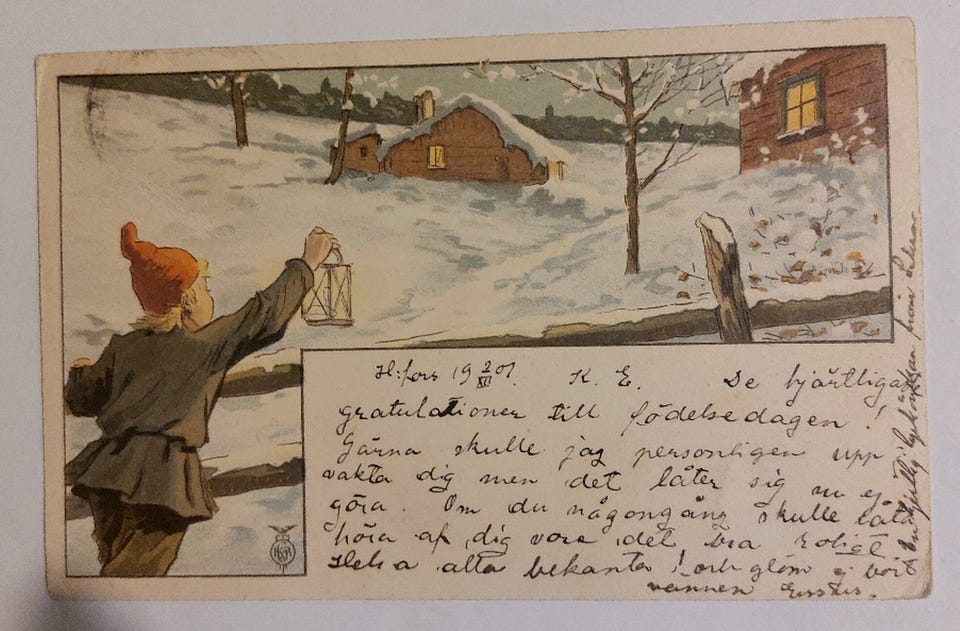 H:fors 19 2/XII 01. K. E. De hjärtligas
gratulationer till födelsedagen!
Gärna skulle jag personligen upp
vakta dig men det låter sig nu ej
göra. Om du någongång skulle låta
höra af dig vore det bra roligt
Helsa alla bekanta! och glöm ej bort
vännen
från